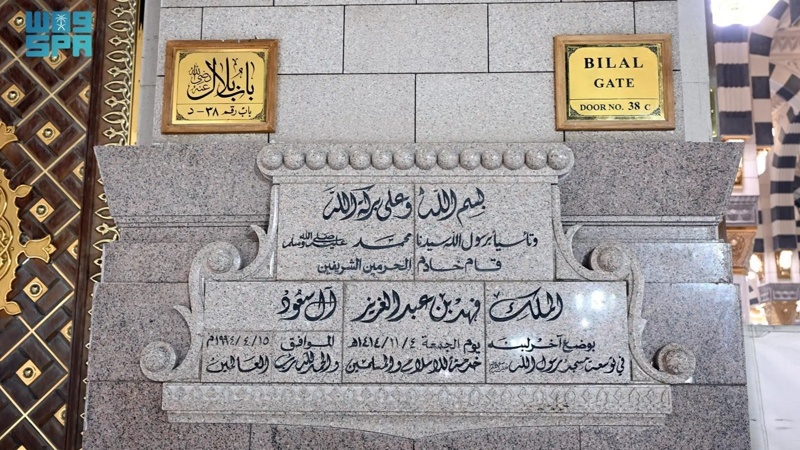 واس
SPA
باب بلال رضي الله عنه
باب رقم ٣٨ - د
BILAL
GATE
DOOR NO. 38 C
بسم الله وعلى بركة الله
وتأسيا برسول الله سيدنا محمد صلى الله عليه وسلم
قام خادم الحرمين الشريفين
الملك فهد بن عبد العزيز آل سعود
بوضع آخر لبنة يوم الجمعة ١٤١٤/١١/٤هـ الموافق ١٩٩٤/٤/١٥م
في توسعة مسجد رسول الله ﷺ خدمة للإسلام والمسلمين والحمد لله رب العالمين